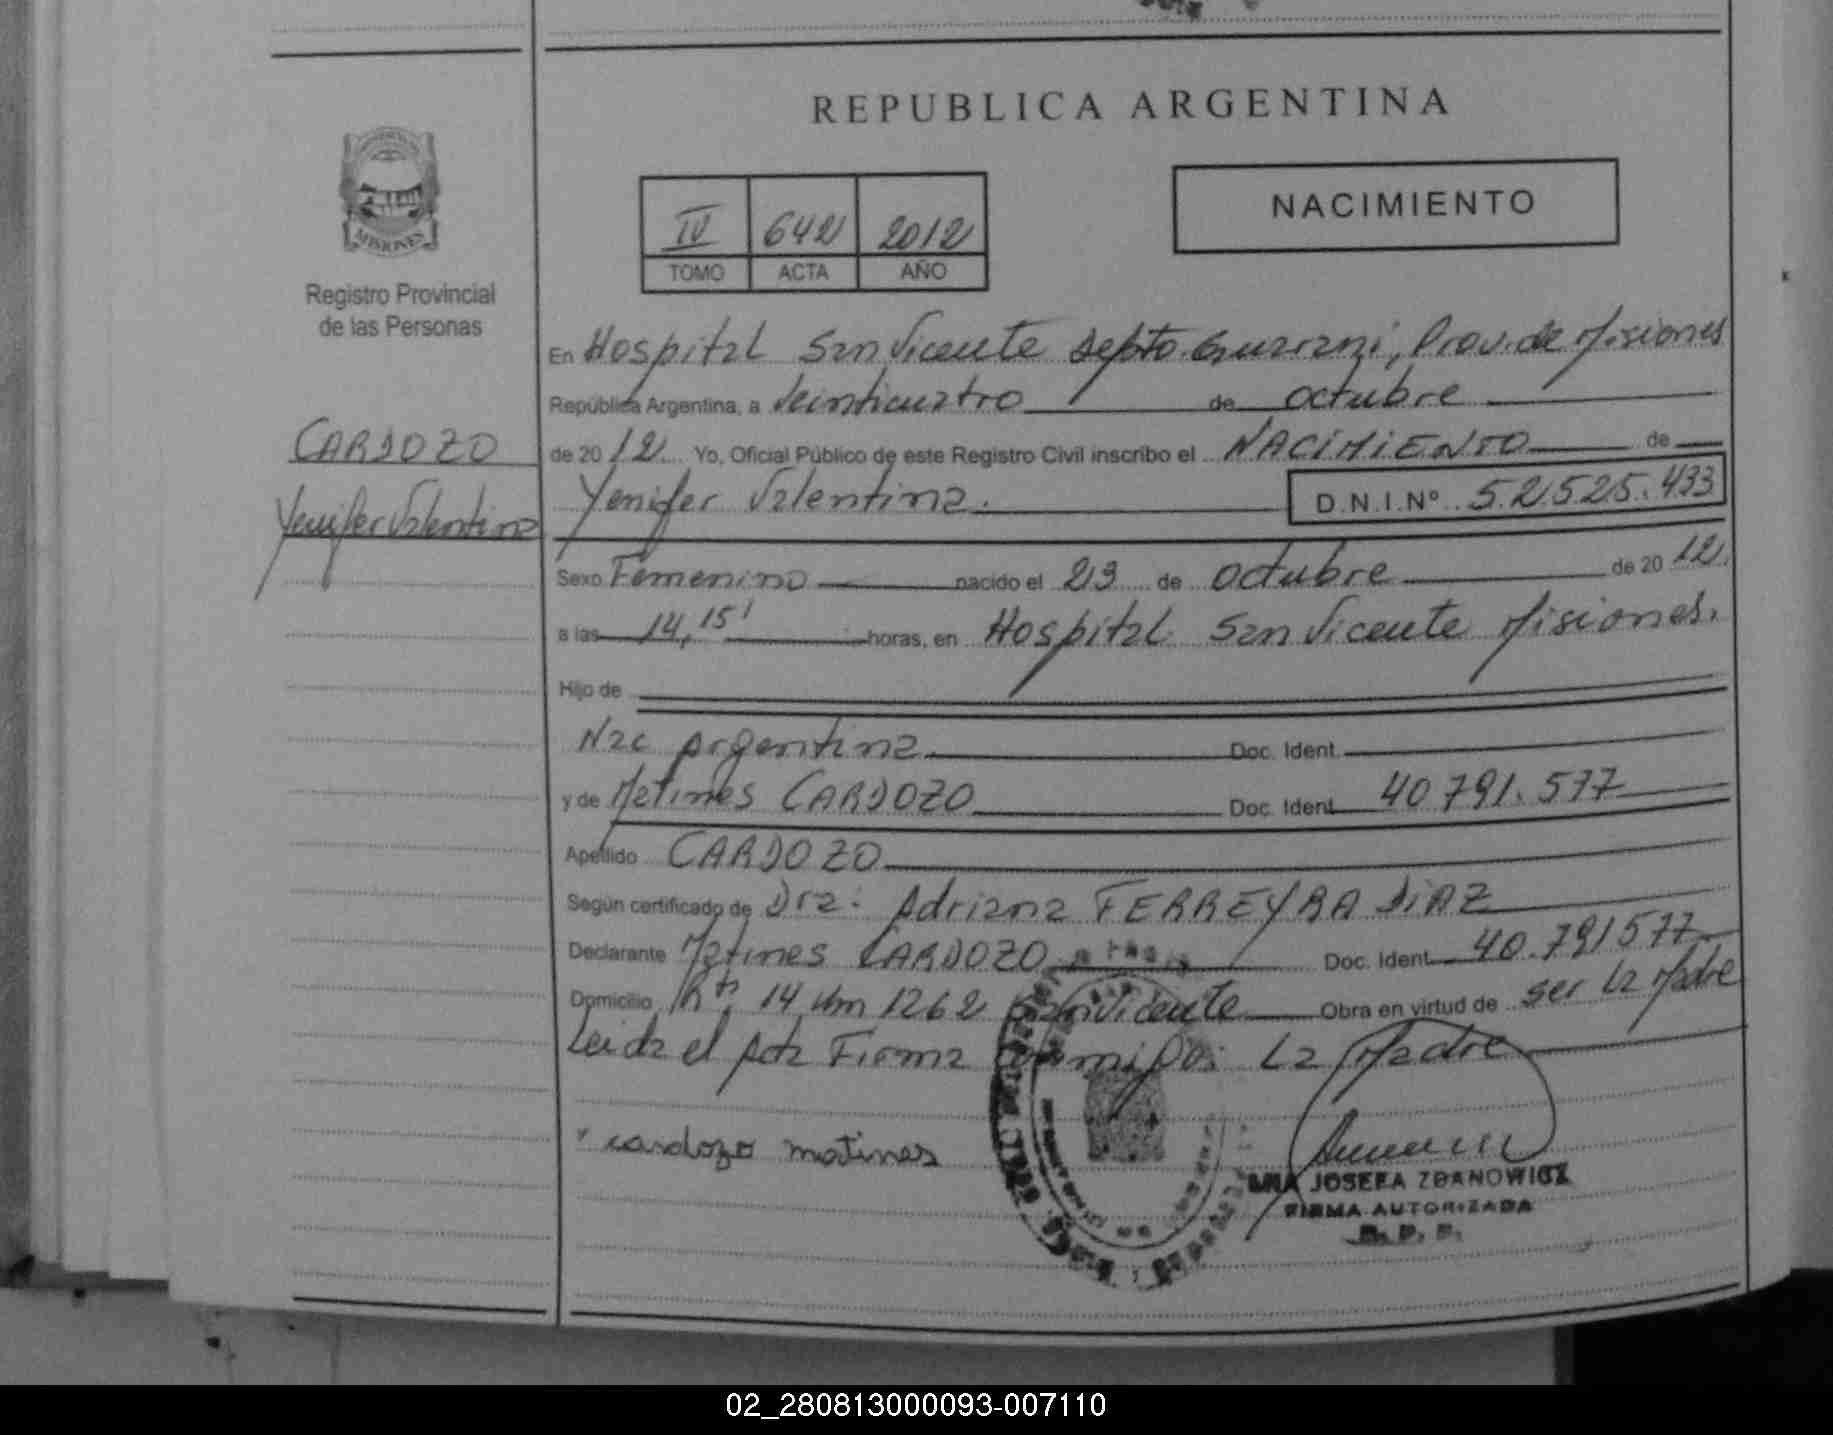 REPUBLICA ARGENTINA
MISIONES
Registro Provincial
de las Personas
IV 642 2012
TOMO ACTA AÑO
NACIMIENTO
CARDOZO
Yenifer Valentina
En Hospital San Vicente Depto. Guarani, Prov. de Misiones
República Argentina, a Veinticuatro de octubre
de 2012. Yo, Oficial Público de este Registro Civil inscribo el NACIMIENTO de
Yenifer Valentina. D.N.I.Nº 52.525.433
Sexo Femenino nacido el 23 de octubre de 2012.
a las 14,15' horas, en Hospital San Vicente Misiones.
Hijo de
Nac Argentina Doc. Ident.
y de Matines CARDOZO Doc. Ident. 40.791.577
Apellido CARDOZO
Según certificado de Dra: Adriana FERREYRA DiAZ
Declarante Matines CARDOZO Doc. Ident. 40.791577
Domicilio Rta. 14 Km 1262 San Vicente Obra en virtud de ser La Madre
Leida el Acta Firma conmigo: La Madre
cardozo matines
JOSEFA ZDANOWICZ
FIRMA AUTORIZADA
R. P. P.
02_280813000093-007110